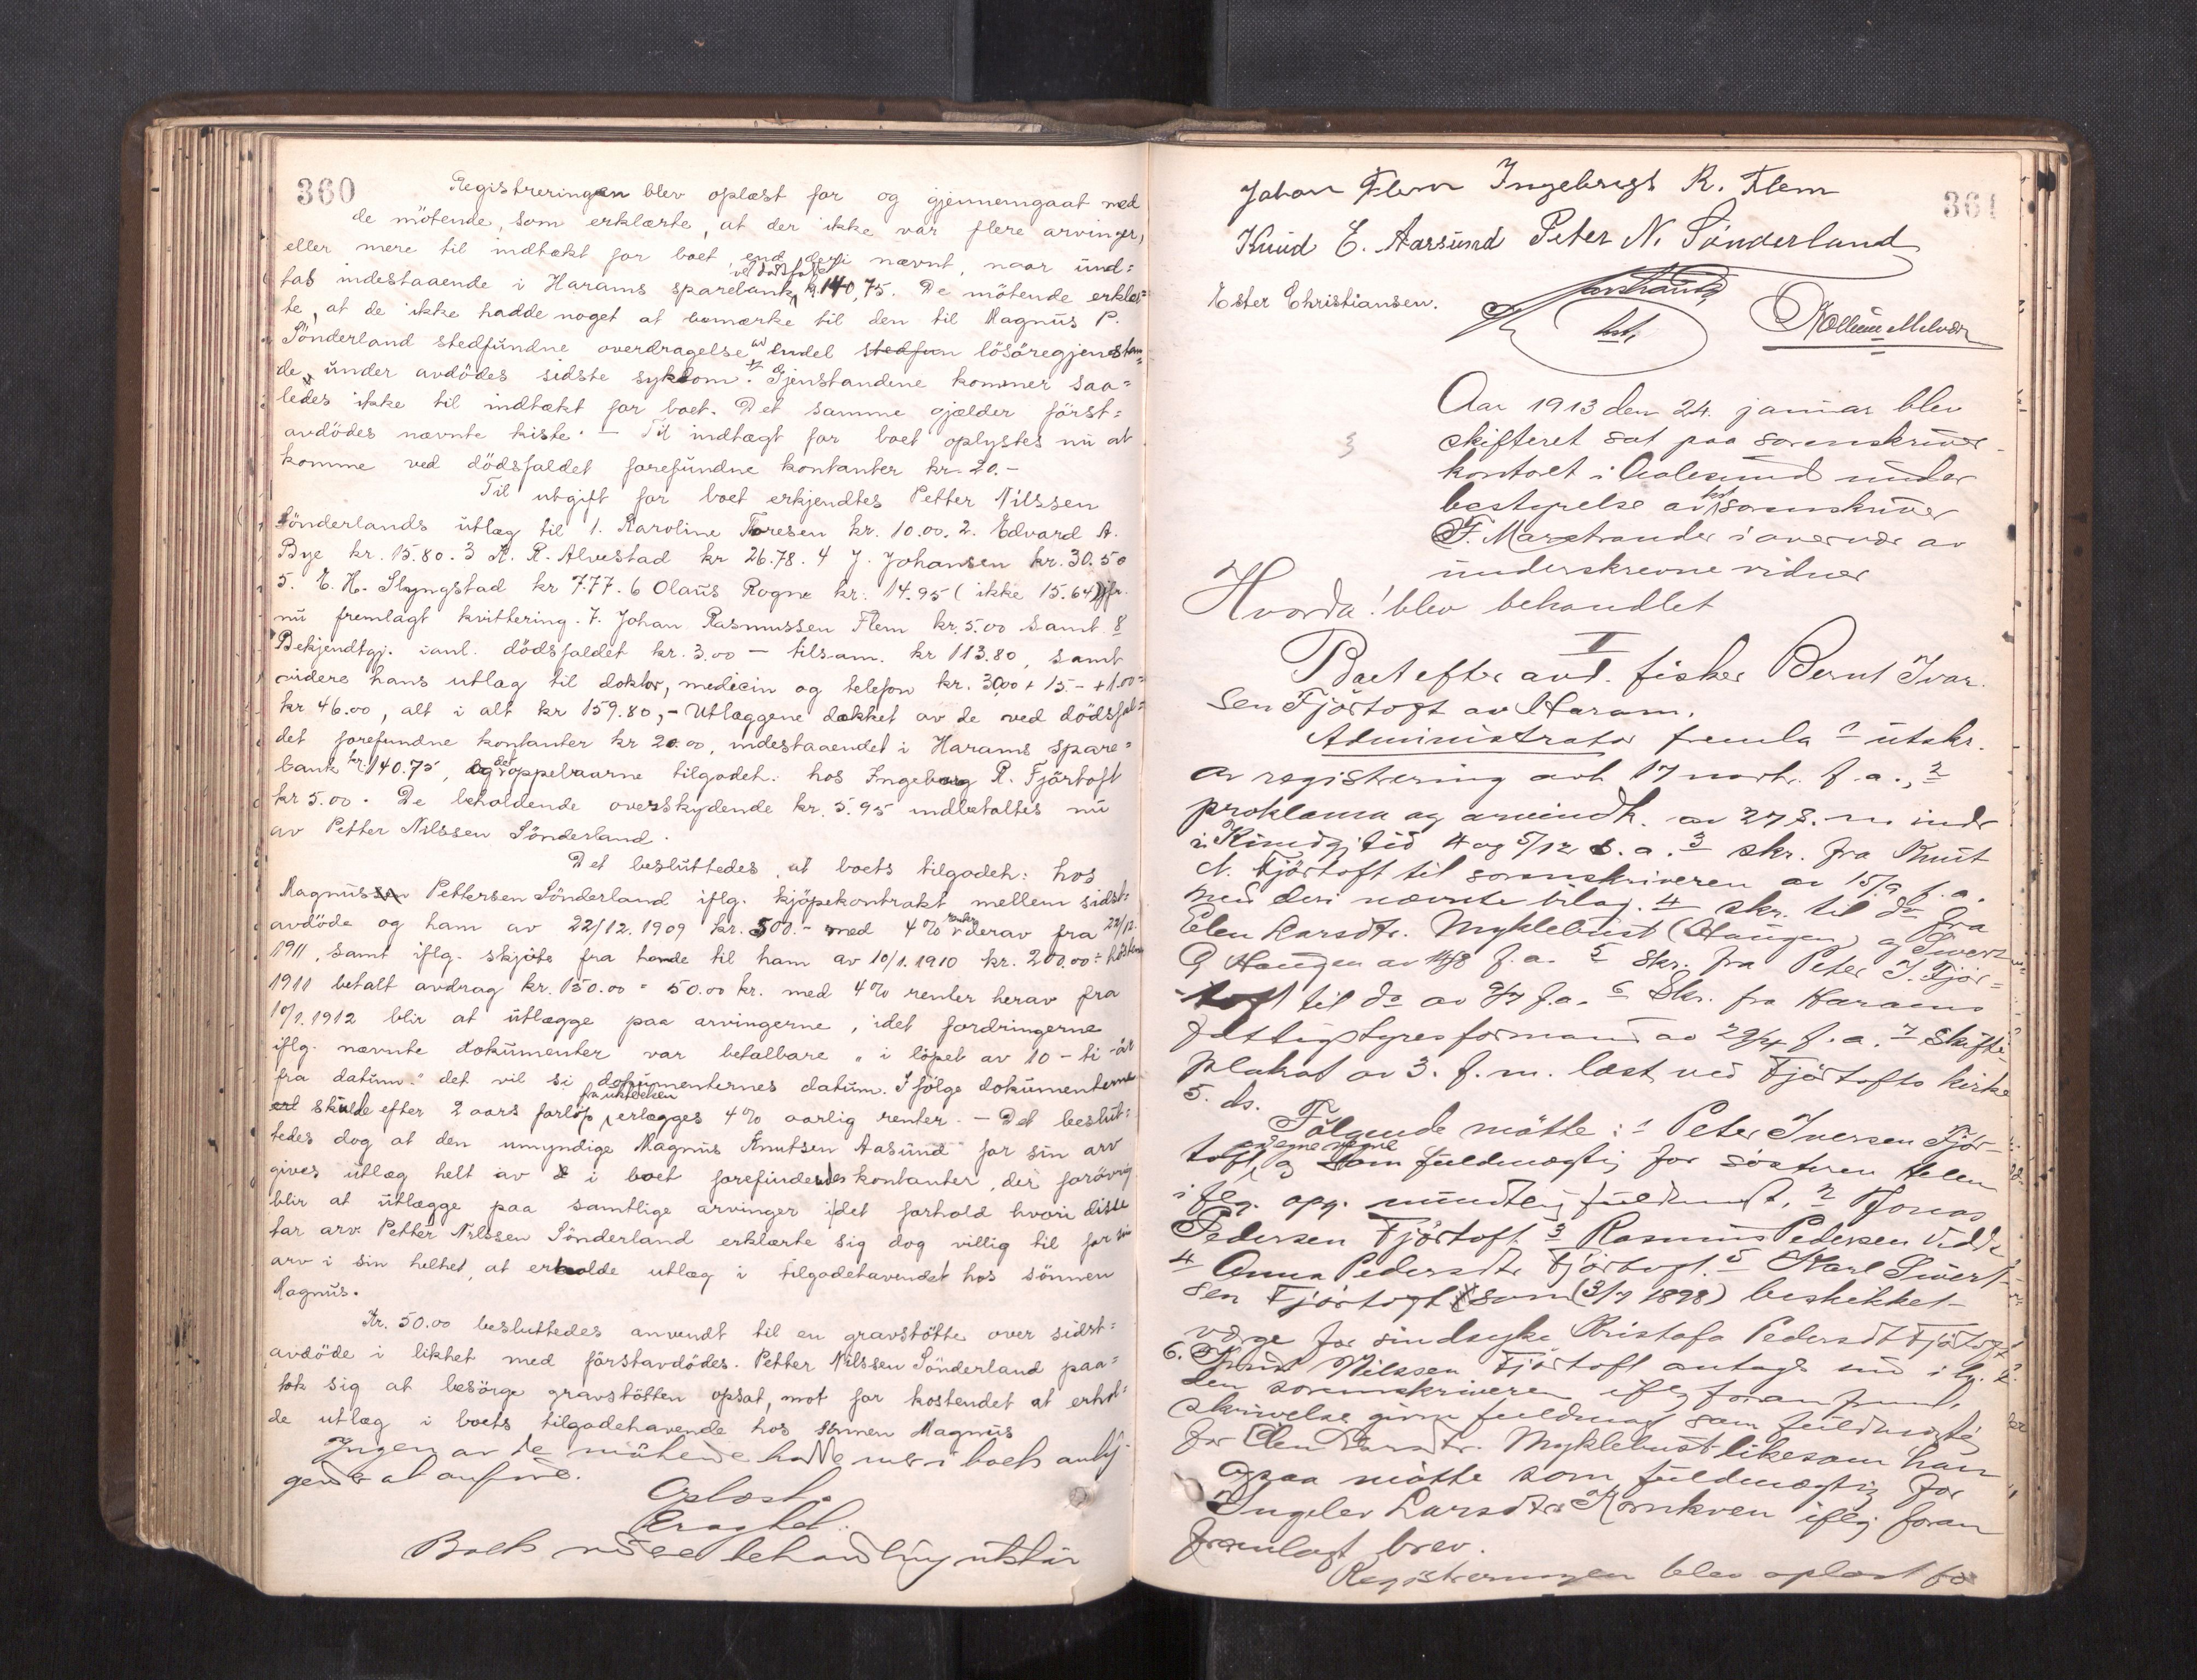 360
Registreringen blev oplæst for og gjennemgaat med
de mötende, som erklærte, at der ikke var flere arvinger,
eller mere til indtækt for boet, end deri nævnt, naar und=
tas indestaaende i Harams sparebank ved dödsfaldet kr. 140,75. De mötende erklær=
te, at de ikke hadde noget at bemærke til den til Magnus P.
Sönderland stedfundne overdragelse av endel stedfun lösöregjenstan=
de under avdödes sidste sykdom. Gjenstandene kommer saa=
ledes ikke til indtækt for boet. Det samme gjælder först=
avdödes nævnte kiste. — Til indtægt for boet oplystes nu at
komme ved dödsfaldet forefundne kontanter kr. 20.-
Til utgift for boet erkjendtes Petter Nilssen
Sönderlands utlæg til 1. Karoline Toresen kr. 10.00. 2. Edvard A.
Bye kr. 15.80. 3 K. R. Alvestad kr 26.78. 4 J. Johansen kr. 30.50
5. E. H. Slyngstad kr 7.77. 6 Olaus Rogne kr. 14.95 (ikke 15.64) jfr.
nu fremlagt kvittering. 7. Johan Rasmussen Flem kr. 5.00 samt 8
Bekjendtgj. i anl. dödsfaldet kr. 3.00 — tilsam. kr 113.80, samt
videre hans utlæg til doktor, medicin og telefon kr. 30.00 + 15.- + 1.00 =
kr 46.00, alt i alt kr 159.80,- Utlæggene dækket av de ved dödsfal=
det forefundne kontanter kr 20.00, indestaaendet i Harams spare=
bank kr. 140.75, og det oppebaarne tilgodeh. hos Ingeborg R. Fjörtoft
kr 5.00. De beholdende overskydende kr. 5.95 indbetaltes nu
av Petter Nilssen Sönderland.
Det besluttedes, at boets tilgodeh. hos
Magnus Pettersen Sönderland iflg. kjöpekontrakt mellem sidst=
avdöde og ham av 22/12. 1909 kr. 500.- med 4% renter derav fra 22/12.
1911, samt iflg. skjöte fra hende til ham av 10/1. 1910 kr. 200.00 ÷ hösten
1911 betalt avdrag kr. 150.00 = 50.00 kr. med 4% renter herav fra
10/1. 1912 blir at utlægge paa arvingerne, idet fordringerne
iflg. nævnte dokumenter var betalbare „i löpet av 10 - ti - år
fra datum." det vil si dokumenternes datum. Ifölge dokumenterne
skulde efter 2 aars forlöp fra utstedelsen erlægges 4% aarlig renter. — Det beslut=
tedes dog at den umyndige Magnus Knutsen Aasund for sin arv
gives utlæg helt av i boet forefindendes kontanter, der forövrig
blir at utlægge paa samtlige arvinger i det forhold hvori disse
tar arv. Petter Nilssen Sönderland erklærte sig dog villig til for sin
arv i sin helhet, at erholde utlæg i tilgodehavendet hos sönnen
Magnus.
Kr. 50.00 besluttedes anvendt til en gravstötte over sidst=
avdöde i likhet med förstavdödes. Petter Nilssen Sönderland paa=
tok sig at besörge gravstötten opsat, mot for kostendet at erhol=
de utlæg i boets tilgodehavende hos sönnen Magnus
Ingen av de mötende hadde mer i boets anlig=
gender at anföre.
Oplæst.
Boets videre behandling utstår
361
Johan Flem Ingebrigt R. Flem
Knud E. Aarsund Peter N. Sönderland
Ester Christiansen.
Aar 1913 den 24. januar blev
skifteret sat paa sorenskriver
kontoret i Aalesund under
bestyrelse av kst sorenskriver
F. Marstrander i overvær av
underskrevne vidner
Hvorda! blev behandlet
II
Boet efter avd. fisker Bernt Ivar=
sen Fjörtoft av Haram.
Administrator fremla 1 utskr.
av registrering avh 17 novbr. f.a., 2
proklama og arveindk. av 27 s.m. indr
i Kundgj.tid 4 og 5/12 s.a. 3 skr. fra Knut
N. Fjörtoft til sorenskriveren av 15/9 f.a.
med deri nævnte bilag. 4 skr. til do fra
Elen Larsdtr. Myklebust (Haugen) og Sivert
Haugen av f.a. 5 skr. fra Peter I. Fjör=
toft til do av f.a. 6 Skr. fra Harams
fattigstyres formand av 29/4 f.a. 7 Skifte
plakat av 3. f.m. læst ved Fjörtofts kirke
5. ds.
Fölgende mötte: 1 Peter Iversen Fjör=
toft, for egne vegne og som fuldmægtig for sösteren Helen
iflg. opg. mundtlig fuldmagt, 2 Jonas
Pedersen Fjörtoft 3 Rasmus Pedersen
4 Anna Pedersdtr Fjörtoft. 5 Karl Sivert=
sen Fjörtoft som (3/7 1898) beskikket
værge for sindsyke Kristofa Pedersdt Fjörtoft
6. Knut Nilssen Fjörtoft antages nu i
den sorenskriveren iflg foran
skrivelse givne fuldmagt som fuldmægtig
for Elen Larsdtr. Myklebust likesom han
ogsaa mötte som fuldmægtig for
Ingelev Larsdtr iflg foran
fremlagt brev.
Registreringen blev oplæst for